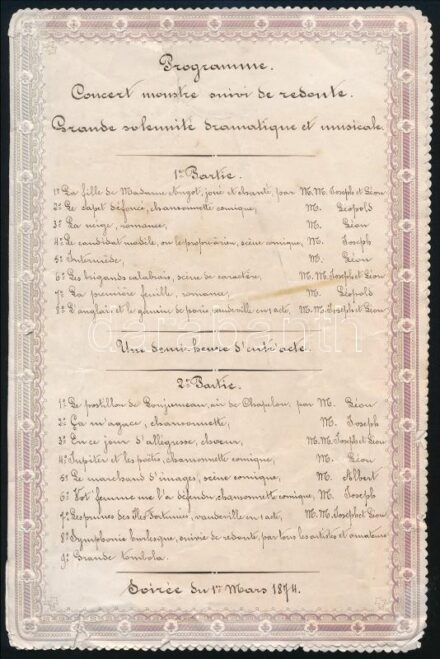 Programme.
Concert monstre suivi de redoute.
Grande solennité dramatique et musicale.
1re Partie.
1º La fille de Madame Angot, joué et chanté, par M.M. Joseph et Léon
2º Le tapet défoncé, chansonnette comique, M. Léopold
3º La neige, romance, M. Léon
4º Le candidat modèle, ou le propre à rien, scène comique, M. Joseph
5º Intermède, M. Léon
6º Les brigands calabrais, scène de caractère, M.M. Joseph et Léon
7º La première feuille, romance, M. Léopold
8º L'anglais et le gamin de Paris, vaudeville en 1 acte, M.M. Joseph et Léon
Une demi-heure d'entr'acte.
2e Partie.
1º Le postillon de Lonjumeau, air de Chapelou, par M. Léon
2º Ça m'agace, chansonnette, M. Joseph
3º En ce jour d'allégresse, M.M. Joseph et Léon
4º Jupiter et les poëtes, chansonnette comique, M. Léon
5º Le marchand d'images, scène comique, M. Albert
6º Vot' femme me l'a défendu, chansonnette comique, M. Joseph
7º Les prunes des Îles Fortunées, vaudeville en 1 acte, M.M. Joseph et Léon
8º Symphonie burlesque, suivie de redoute, par tous les artistes et amateurs
9º Grande tombola.
Soirée du 1er Mars 1874.
darabanth